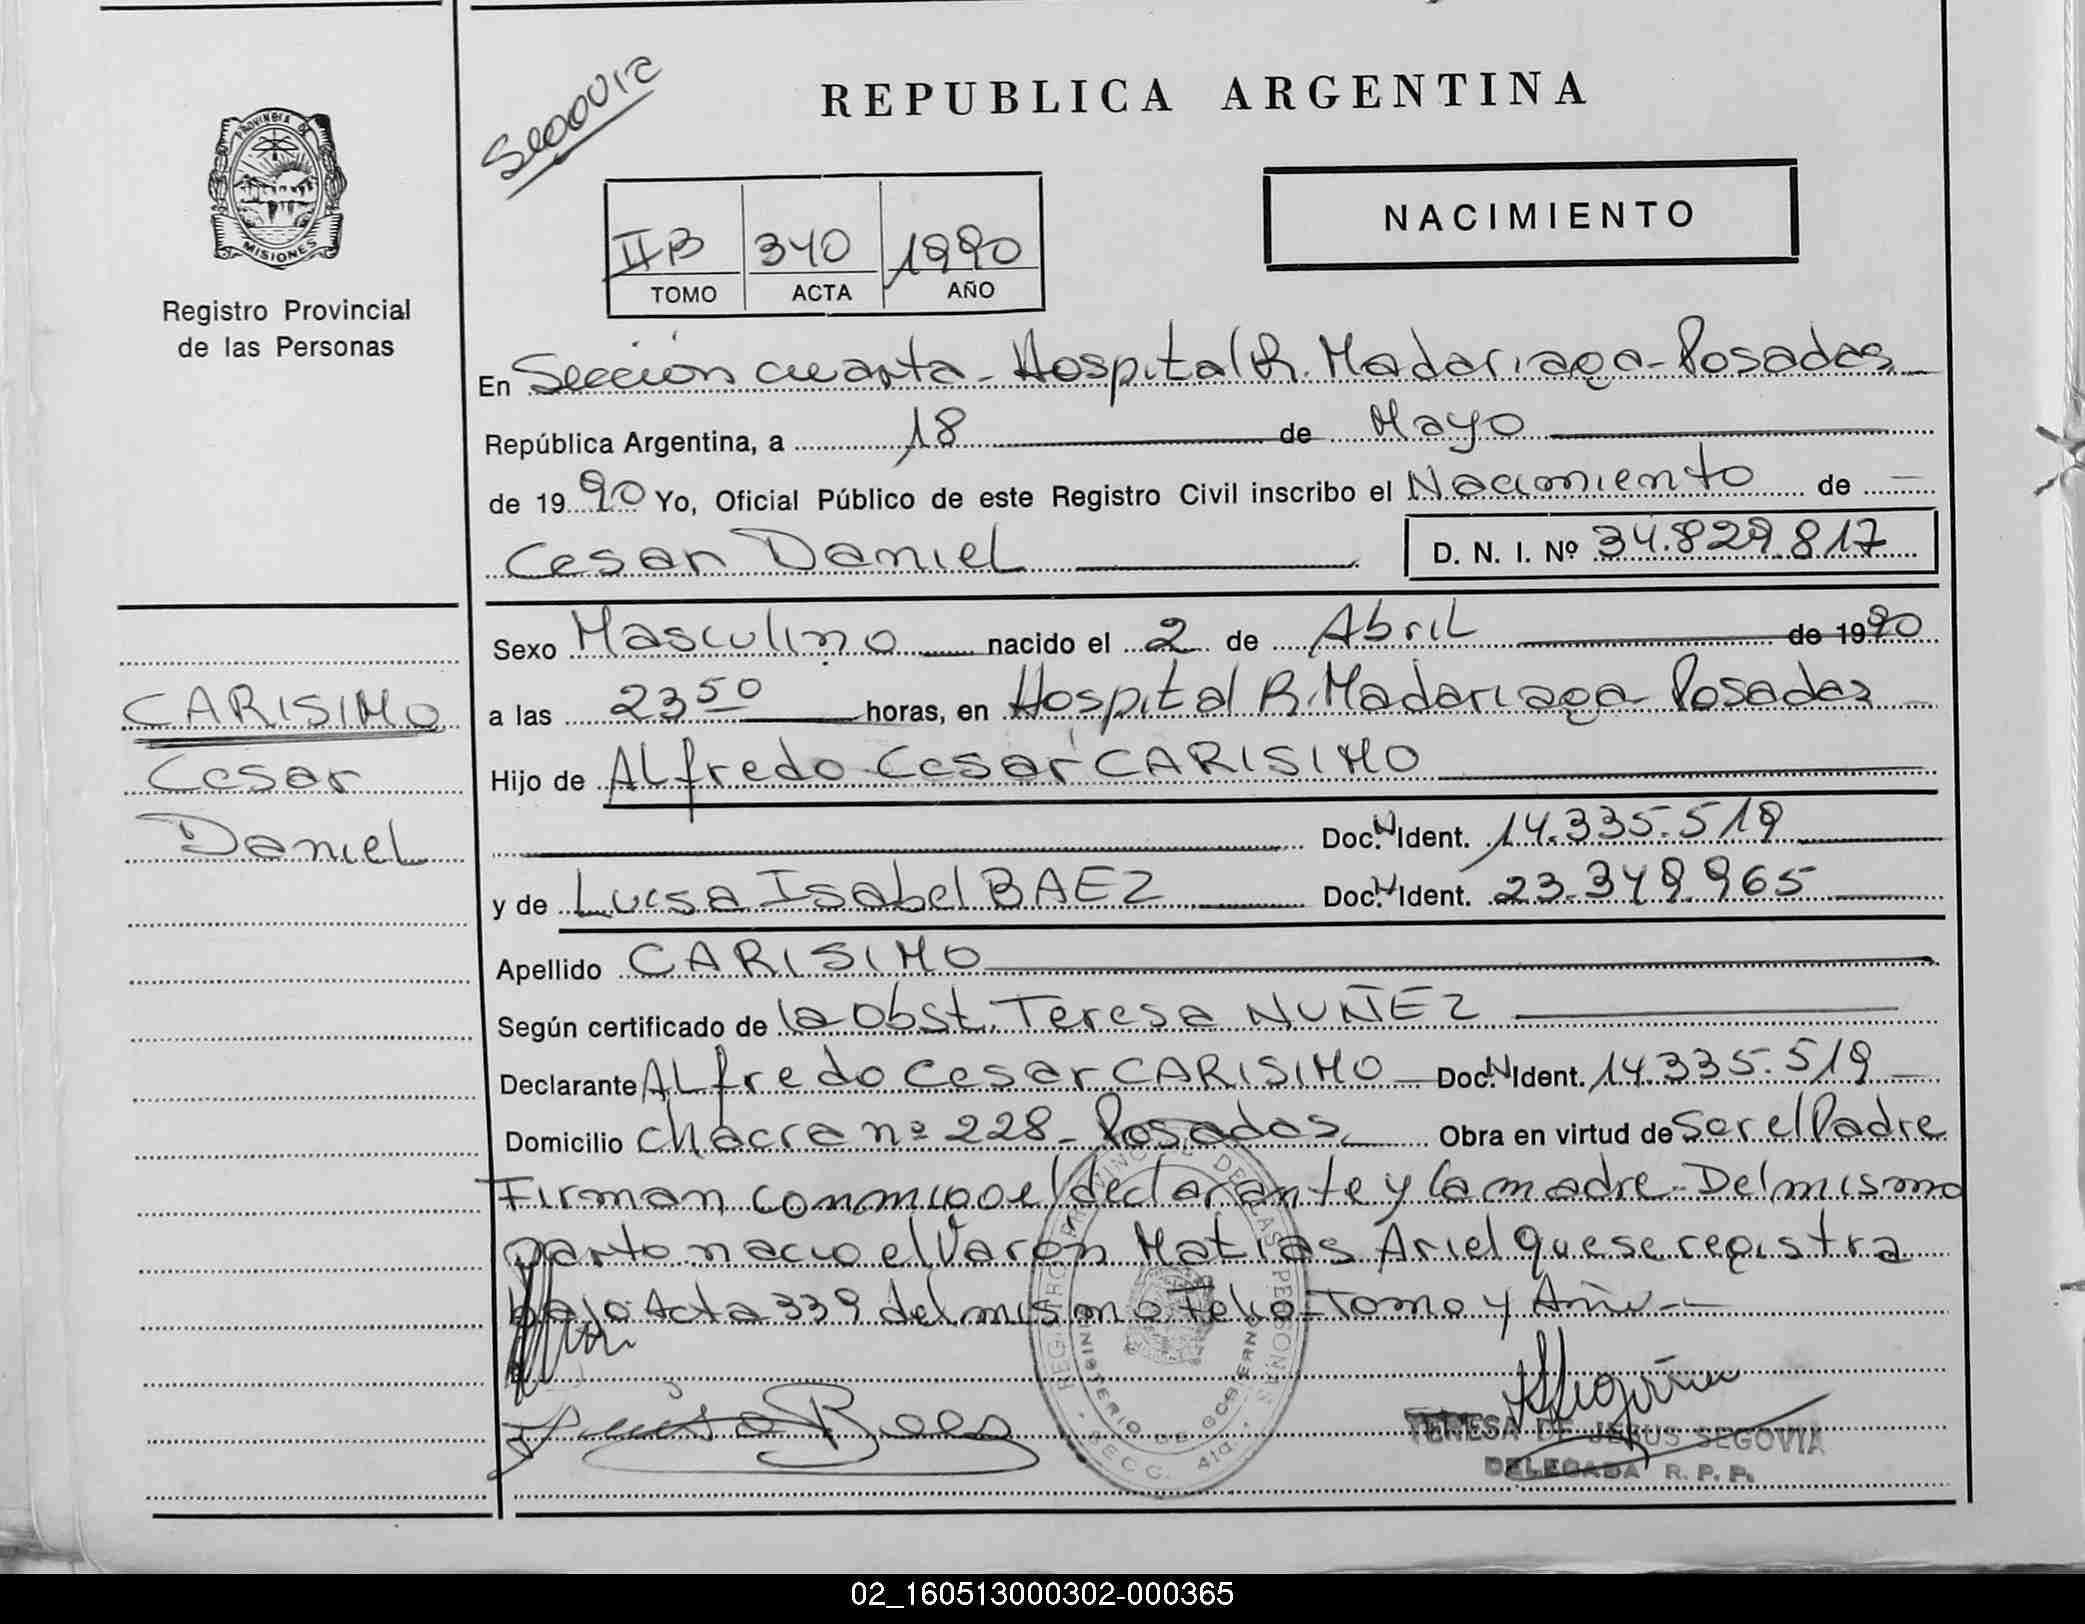 Segovia
REPUBLICA ARGENTINA
PROVINCIA DE
MISIONES
Registro Provincial
de las Personas
NACIMIENTO
IIB 340 1990
TOMO ACTA AÑO
En Sección cuarta - Hospital R. Madariaga - Posadas
República Argentina, a 18 de Mayo
de 1990 Yo, Oficial Público de este Registro Civil inscribo el Nacimiento de
Cesar Daniel D. N. I. Nº 34.829.817
Sexo Masculino nacido el 2 de Abril de 1990
a las 23 50 horas, en Hospital R. Madariaga - Posadas
Hijo de Alfredo Cesar CARISIMO
Doc. N Ident. 14.335.519
y de Luisa Isabel BAEZ Doc. N Ident. 23.349.965
Apellido CARISIMO
Según certificado de la Obst. Teresa NUÑEZ
Declarante Alfredo Cesar CARISIMO Doc. N Ident. 14.335.519
Domicilio Chacra nº 228 - Posadas Obra en virtud de Ser el Padre
Firman conmigo el declarante y la madre - Del mismo
parto nacio el Varon Matias Ariel que se registra
bajo Acta 339 del mismo Folio - Tomo y Año --
CARISIMO
Cesar
Daniel
Luisa Baez
REGISTRO PROVINCIAL DE LAS PERSONAS
MINISTERIO DE GOBIERNO
SECC. 4ta.
TERESA DE JESUS SEGOVIA
DELEGADA R. P. P.
02_160513000302-000365